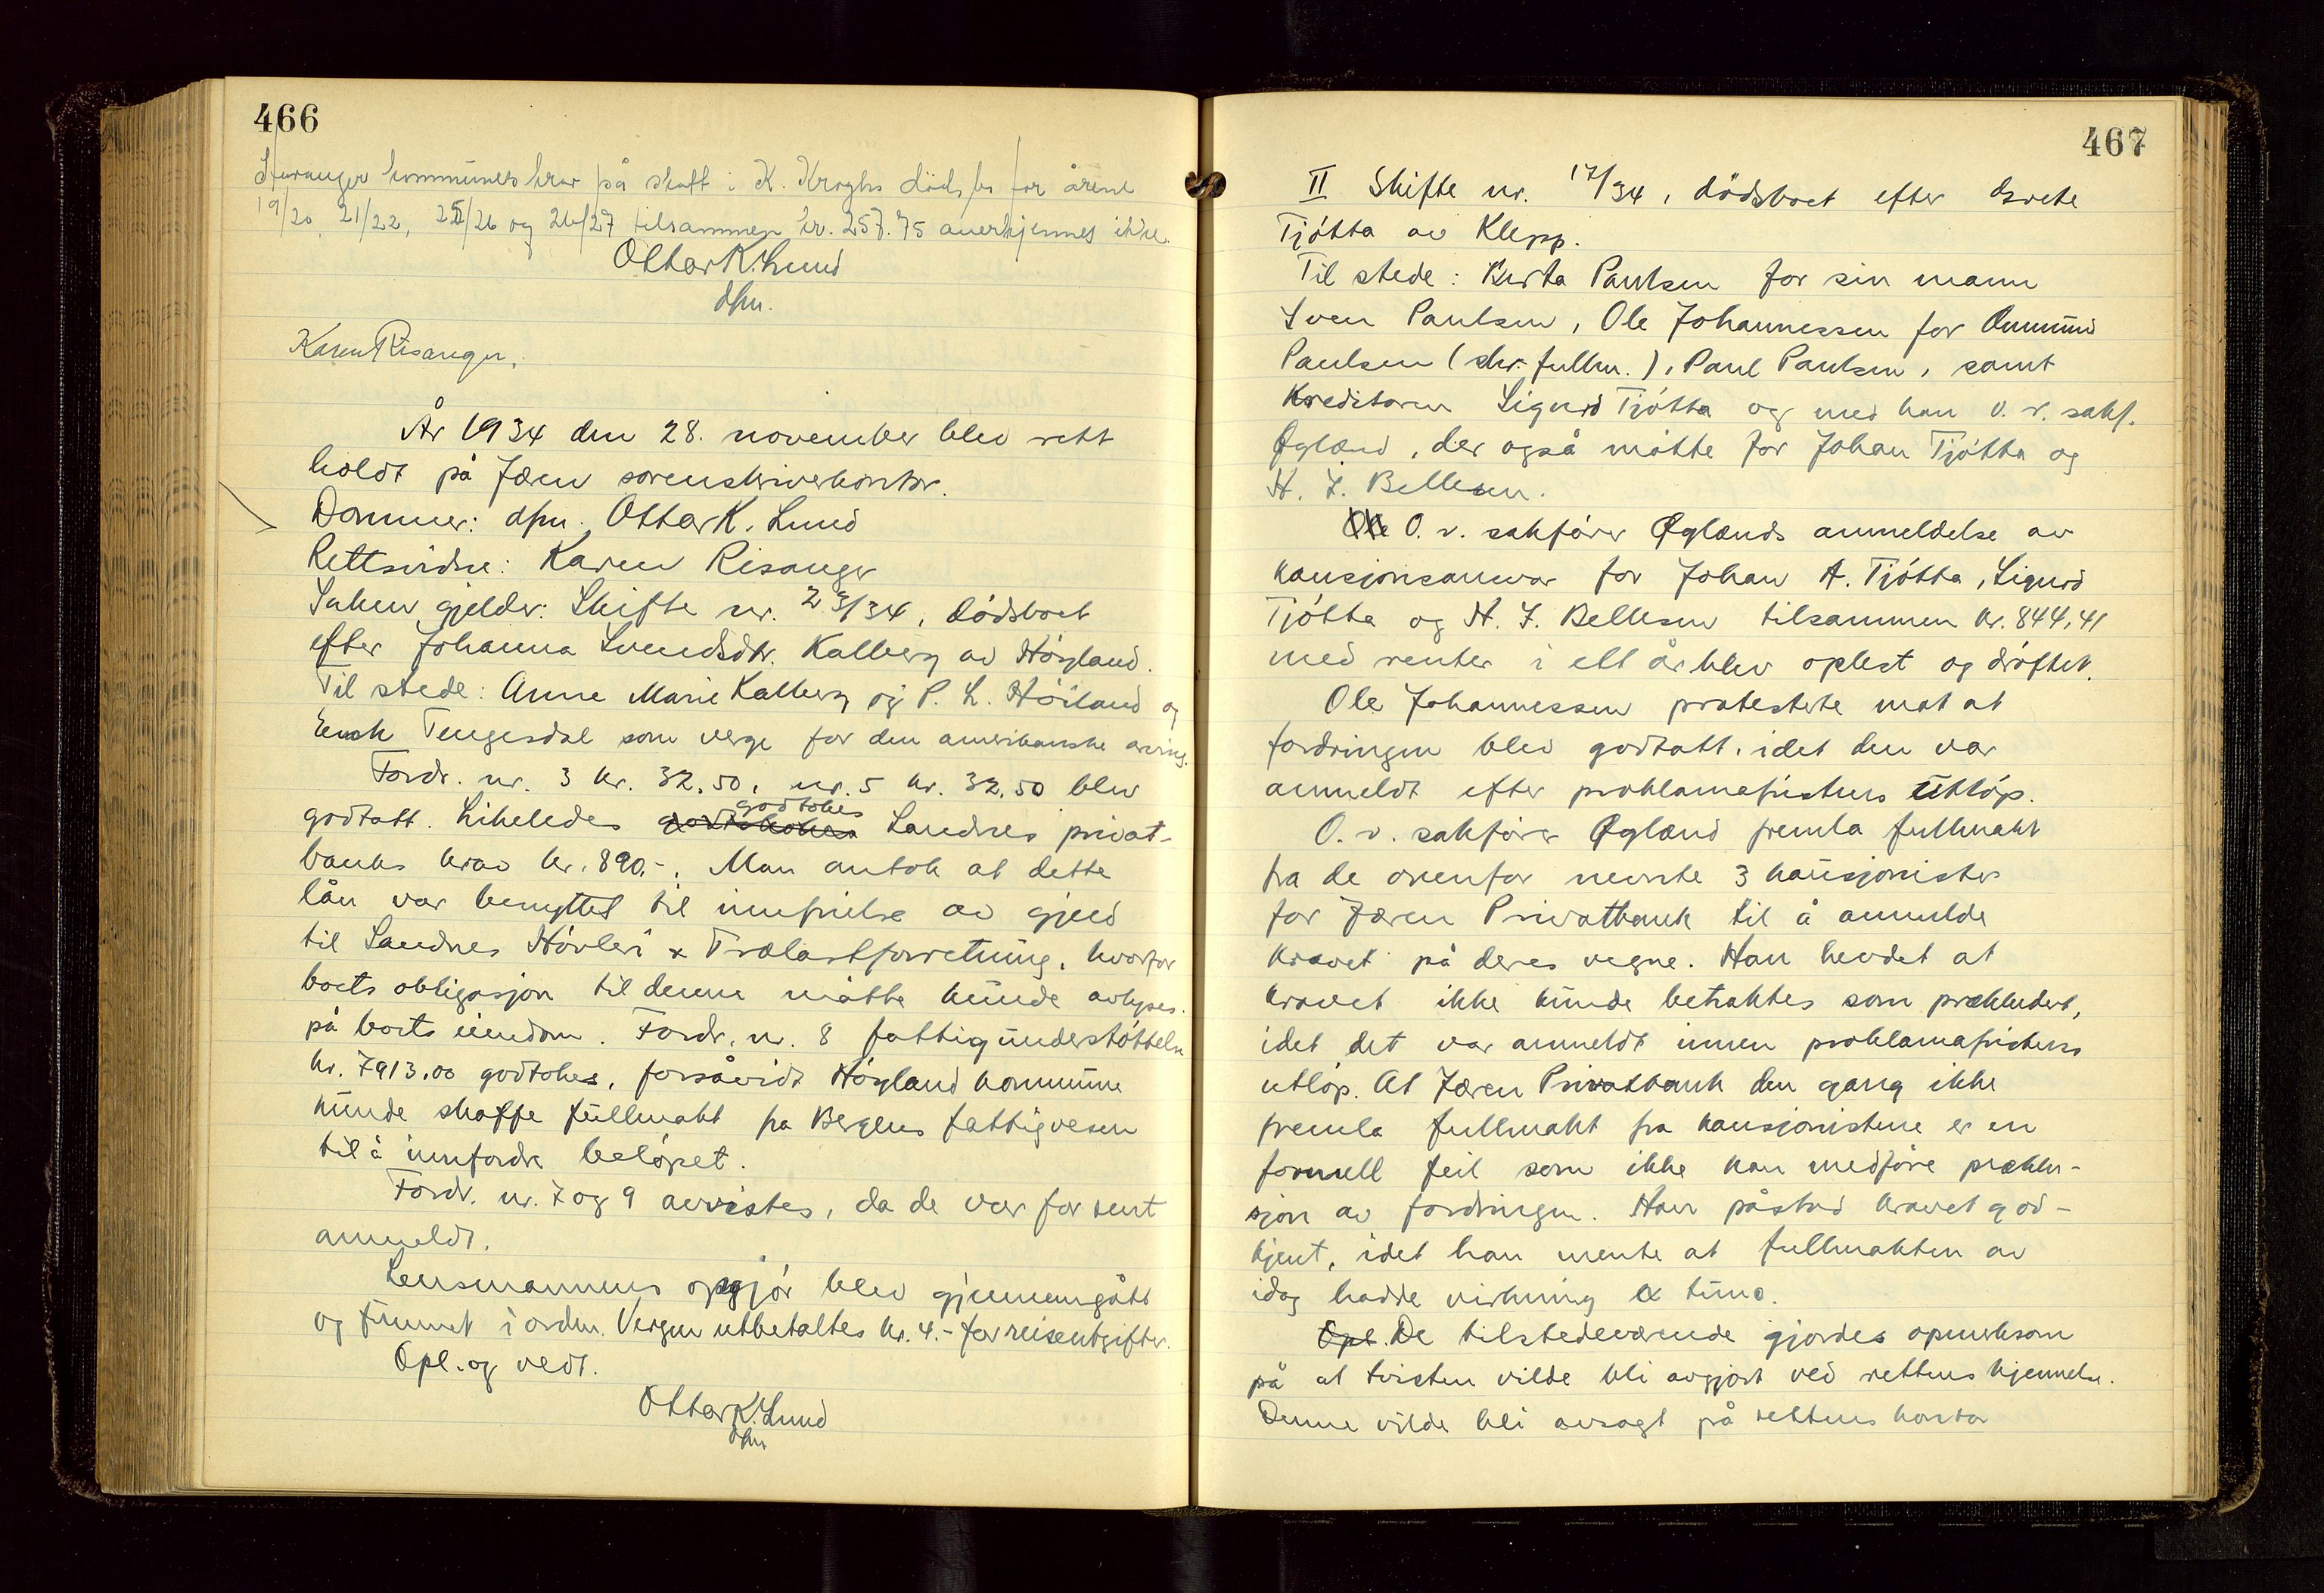 466
Stavanger kommunes krav på skatt i K. Kroghs dødsbo for årene
19/20, 21/22, 25/26 og 26/27 tilsammen kr. 257.75 anerkjennes ikke.
Ottar K. Lund
dfm.
Karen Risanger.
År 1934 den 28. november blev rett
holdt på Jæren sorenskriverkontor.
Dommer: dfm. Ottar K. Lund
Rettsvidne: Karen Risanger
Saken gjelder: Skifte nr. 23/34, dödsboet
efter Johanna Svendsdtr. Kalberg av Höyland.
Til stede: Anne Marie Kalberg og P. L. Höiland og
Tengesdal som verge for den amerikanske arving.
Fordr. nr. 3 kr. 32.50, nr. 5 kr. 32.50 blev
godtatt. Likeledes godtokes Sandnes privat-
banks krav kr. 890,-. Man antok at dette
lån var benyttet til innfrielse av gjeld
til Sandnes Hövleri & Trælastforretning, hvorfor
boets obligasjon til denne måtte kunde avlyses
på boets eiendom. Fordr. nr. 8 fattigunderstöttelse
kr. 7913.00 godtokes, forsåvidt Höyland kommune
kunde skaffe fullmakt fra Bergens fattigvesen
til å innfordre belöpet.
Fordr. nr. 7 og 9 avvistes, da de var for sent
anmeldt.
Lensmannens opgjör blev gjennemgått
og funnet i orden. Vergen utbetaltes kr. 4.- for reiseutgifter.
Opl. og vedt.
Ottar K. Lund
dfm
467
II Skifte nr. 17/34, dödsboet efter Grete
Tjótta av Klepp.
Til stede: Berta Paulsen for sin mann
Sven Paulsen, Ole Johannessen for Ommund
Paulsen (skr. fullm.), Paul Paulsen, samt
Kreditoren Sigurd Tjótta og med han o. r. sakf.
Øglænd, der også mötte for Johan Tjótta og
H. J. Bellesen.
Ole O. r. sakförer Øglænds anmeldelse av
kausjonsansvar for Johan A. Tjótta, Sigurd
Tjótta og H. J. Bellesen tilsammen kr. 844,41
med renter i ett år blev oplest og dröftet.
Ole Johannessen protesterte mot at
fordringen blev godtatt, idet den var
anmeldt efter proklamafristens utlöp.
O. r. sakförer Øglænd fremla fullmakt
fra de ovenfor nevnte 3 kausjonister
for Jæren Privatbank til å anmelde
kravet på deres vegne. Han hevdet at
kravet ikke kunde betraktes som prekludert,
idet det var anmeldt innen proklamafristens
utlöp. At Jæren Privatbank den gang ikke
fremla fullmakt fra kausjonistene er en
formell feil som ikke kan medföre preklu-
sjon av fordringen. Han påstod kravet god-
kjent, idet han mente at fullmakten av
idag hadde virkning ex tunc.
Opl. De tilstedeværende gjordes opmerksom
på at tvisten vilde bli avgjort ved rettens kjennelse.
Denne vilde bli avsagt på rettens kontor